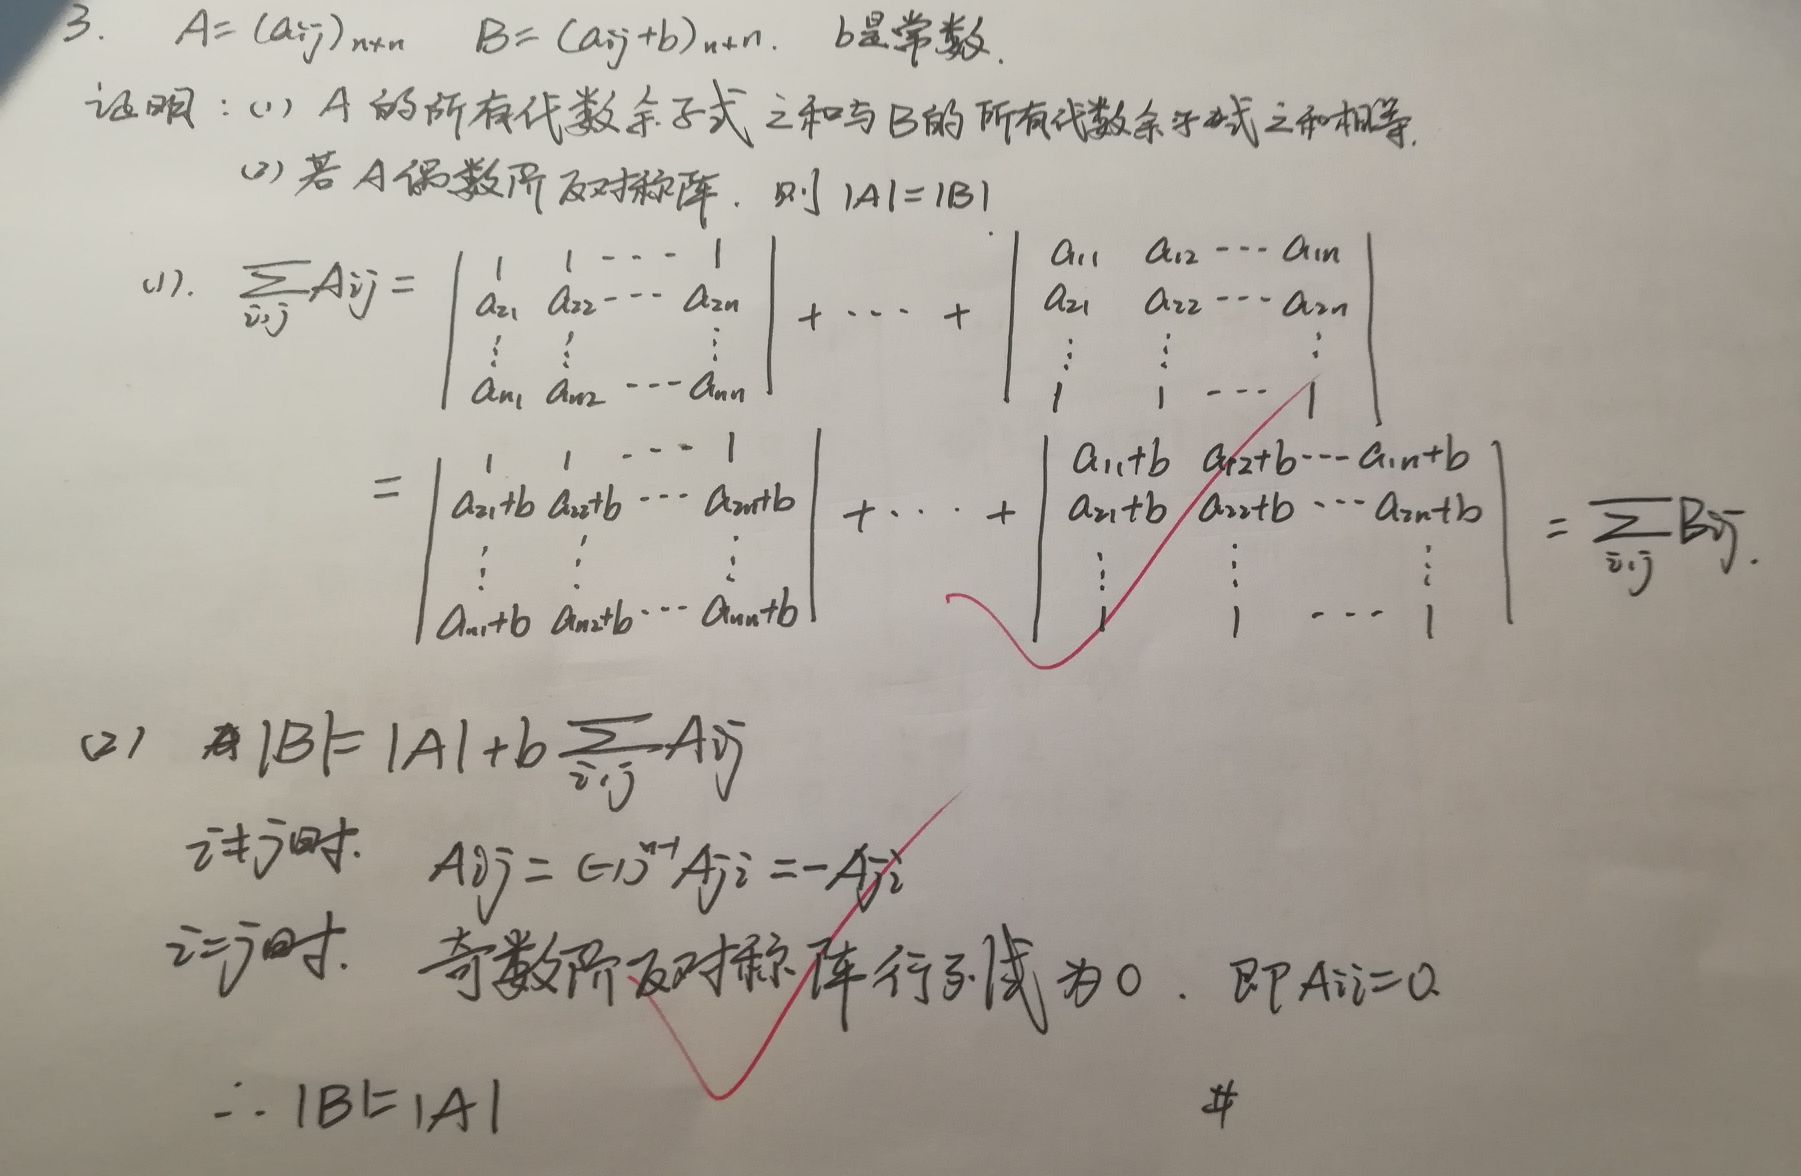 3. A=(aij)n×n B=(aij+b)n×n. b是常数.
证明：(1) A的所有代数余子式之和与B的所有代数余子式之和相等.
(2) 若A偶数阶反对称阵. 则|A|=|B|
(1). ∑i,j Aij = | 1 1 --- 1 | + ··· + | a11 a12 --- a1n |
a21 a22 --- a2n a21 a22 --- a2n
⋮ ⋮ ⋮ ⋮ ⋮ ⋮
an1 an2 --- ann 1 1 --- 1
= | 1 1 --- 1 | + ···· + | a11+b a12+b --- a1n+b |
a21+b a22+b --- a2n+b a21+b a22+b --- a2n+b = ∑i,j Bij.
⋮ ⋮ ⋮ ⋮ ⋮ ⋮
an1+b an2+b --- ann+b 1 1 --- 1
(2) |B|=|A|+b∑i,j Aij
i≠j时. Aij=(-1)^n-1 Aji=-Aji
i=j时. 奇数阶反对称阵行列式为0. 即Aii=0.
∴ |B|=|A| #